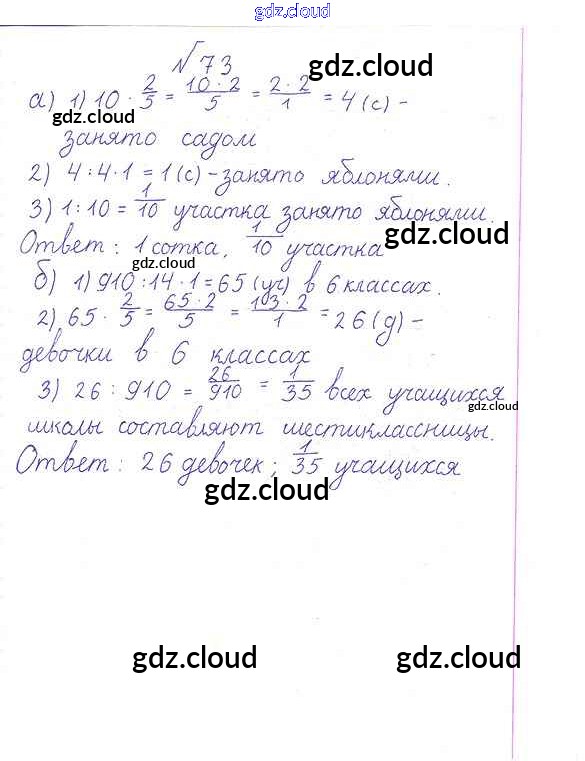 gdz.cloud
№73 gdz.cloud
а) 1) 10 · 2/5 = 10·2/5 = 2·2/1 = 4 (с) -
gdz.cloud
занято садом
2) 4 : 4 · 1 = 1 (с) - занято яблонями.
3) 1 : 10 = 1/10 участка занято яблонями.
Ответ: 1 сотка, 1/10 участка gdz.cloud
gdz.cloud
б) 1) 910 : 14 · 1 = 65 (уч) в 6 классах.
2) 65 · 2/5 = 65·2/5 = 13·2/1 = 26 (д) -
девочки в 6 классах
3) 26 : 910 = 26/910 = 1/35 всех учащихся
gdz.cloud
школы составляют шестиклассницы.
Ответ: 26 девочек; 1/35 учащихся
gdz.cloud
gdz.cloud gdz.cloud